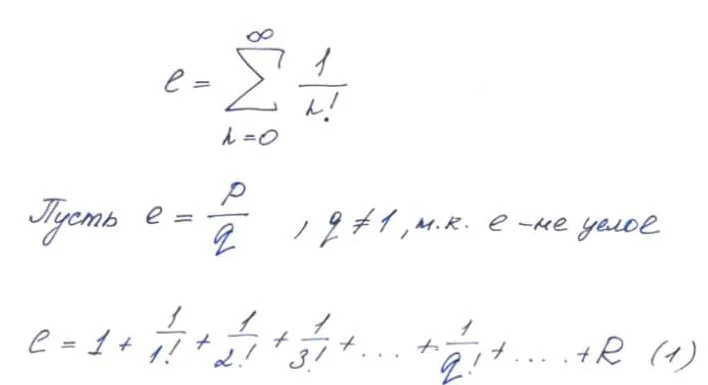 e = ∞ ∑ n=0 1/n!
Пусть e = p/q , q ≠ 1, т.к. e - не целое
e = 1 + 1/1! + 1/2! + 1/3! + ... + 1/q! + .... + R (1)